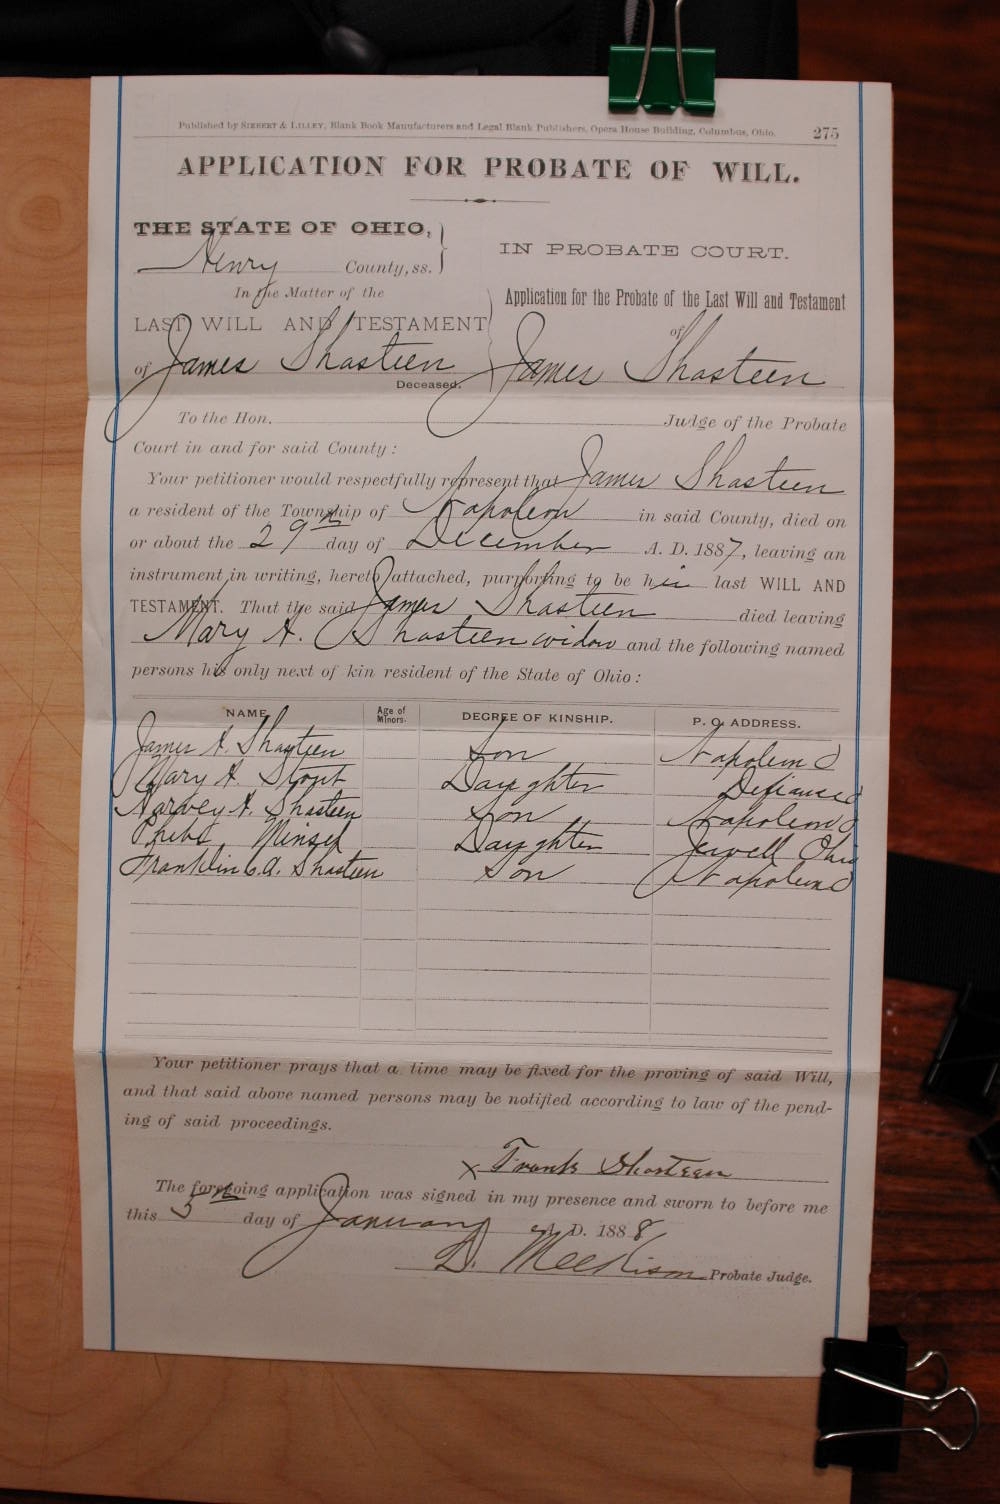 Published by SIEBERT & LILLEY, Blank Book Manufacturers and Legal Blank Publishers, Opera House Building, Columbus, Ohio. 275
APPLICATION FOR PROBATE OF WILL.
THE STATE OF OHIO,
Henry County, ss.
IN PROBATE COURT.
In the Matter of the
LAST WILL AND TESTAMENT
of James Shasteen
Deceased.
Application for the Probate of the Last Will and Testament
of
James Shasteen
To the Hon. Judge of the Probate
Court in and for said County:
Your petitioner would respectfully represent that James Shasteen
a resident of the Township of Napoleon in said County, died on
or about the 29th day of December A. D. 1887, leaving an
instrument in writing, hereto attached, purporting to be his last WILL AND
TESTAMENT. That the said James Shasteen died leaving
Mary A. Shasteen widow and the following named
persons his only next of kin resident of the State of Ohio:
NAME Age of Minors. DEGREE OF KINSHIP. P. O. ADDRESS.
James A. Shasteen Son Napoleon O
Mary A. Stout Daughter Defiance O
Harvey A. Shasteen Son Napoleon O
Phebe Daughter Jewell Ohio
Franklin C. A. Shasteen Son Napoleon O
Your petitioner prays that a time may be fixed for the proving of said Will,
and that said above named persons may be notified according to law of the pend-
ing of said proceedings.
x Frank Shasteen
The foregoing application was signed in my presence and sworn to before me
this 5th day of January A. D. 1888
D. Meekison Probate Judge.